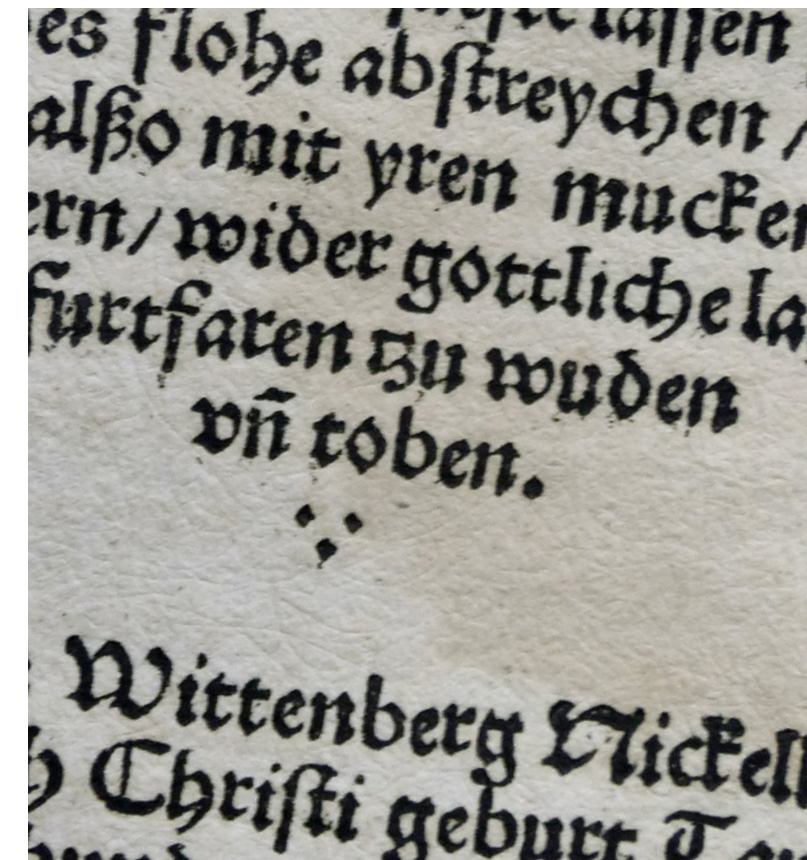 lassen
es flohe abstreychen /
alßo mit yren mucken
ern/ wider gottliche la
furtfaren zu wuden
vn̄ toben.
Wittenberg Nickell
h Christi geburt